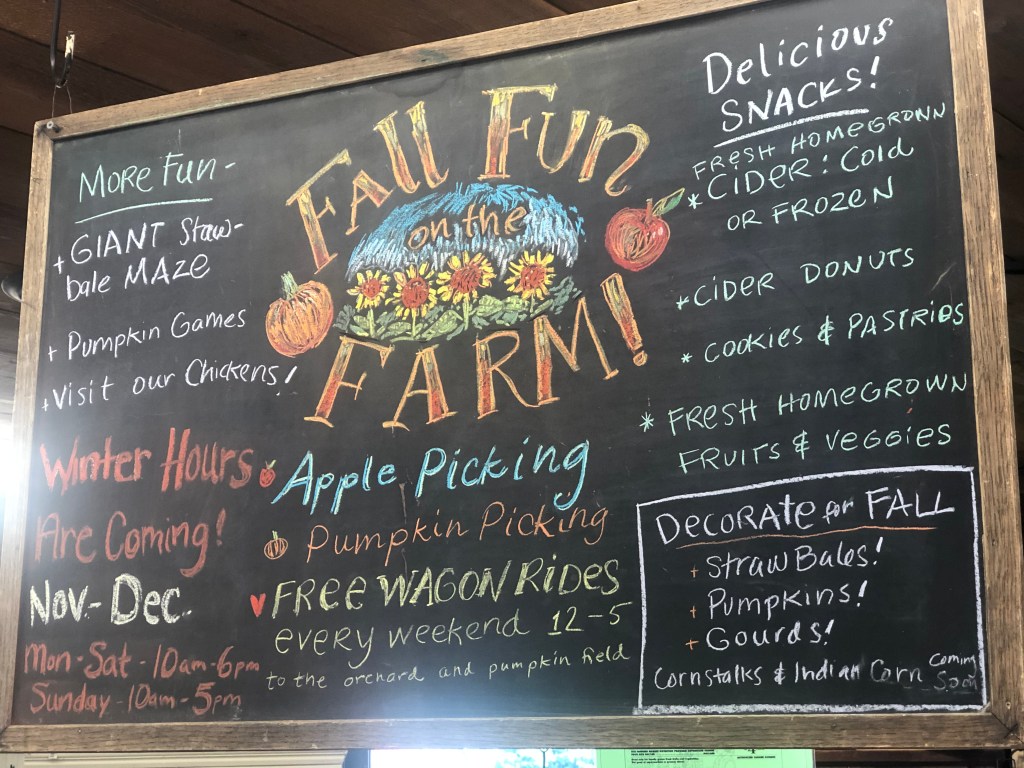 Fall Fun
on the
FARM!
More Fun -
+ GIANT Staw-
bale MAZE
+ Pumpkin Games
+ Visit our Chickens!
Winter Hours
Are Coming!
Nov. - Dec.
Mon - Sat - 10am - 6pm
Sunday - 10am - 5pm
Apple Picking
Pumpkin Picking
FREE WAGON RIDES
every weekend 12-5
to the orchard and pumpkin field
Delicious
SNACKS!
FRESH HOMEGROWN
* CIDER: Cold
OR FROZEN
* CIDER DONUTS
* COOKIES & PASTRIES
* FRESH HOMEGROWN
FRUITS & VEGGIES
DECORATE for FALL
+ Straw Bales!
+ Pumpkins!
+ Gourds!
Cornstalks & Indian Corn Coming
Soon